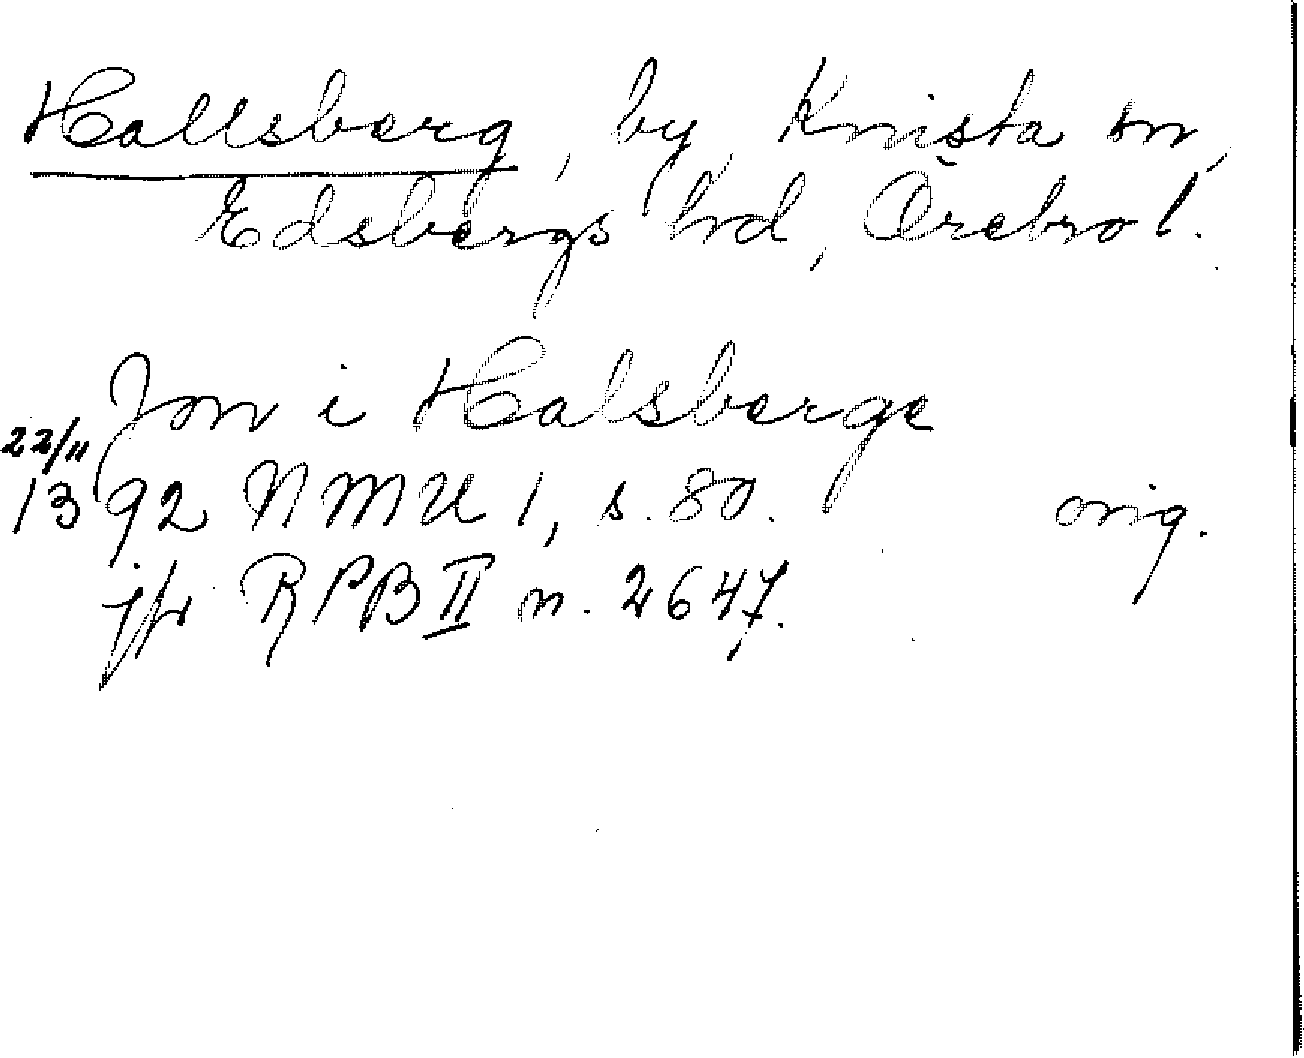 Hallsberg, by, Knista sn,
Edsbergs hrd, Örebro l.
Jon i Halsberge
22/11
1392 NMU 1, s. 80. orig.
jfr RPB II n. 2647.